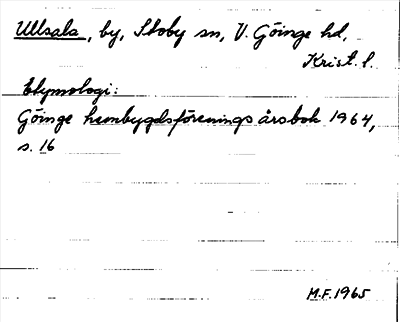 Ullsala, by, Stoby sn, V. Göinge hd,
Krist. l.
Etymologi:
Göinge hembygdsförenings årsbok 1964,
s. 16
M.F. 1965